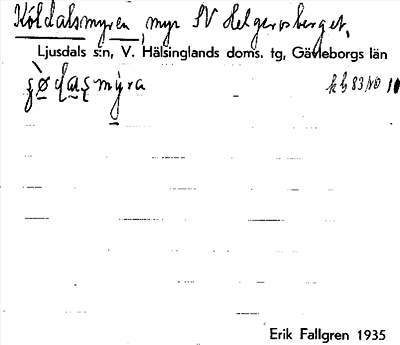 Köldalsmyren, myr SV Helgerosberget,
Ljusdals s:n, V. Hälsinglands doms. tg, Gävleborgs län
kb 83 NO
Erik Fallgren 1935